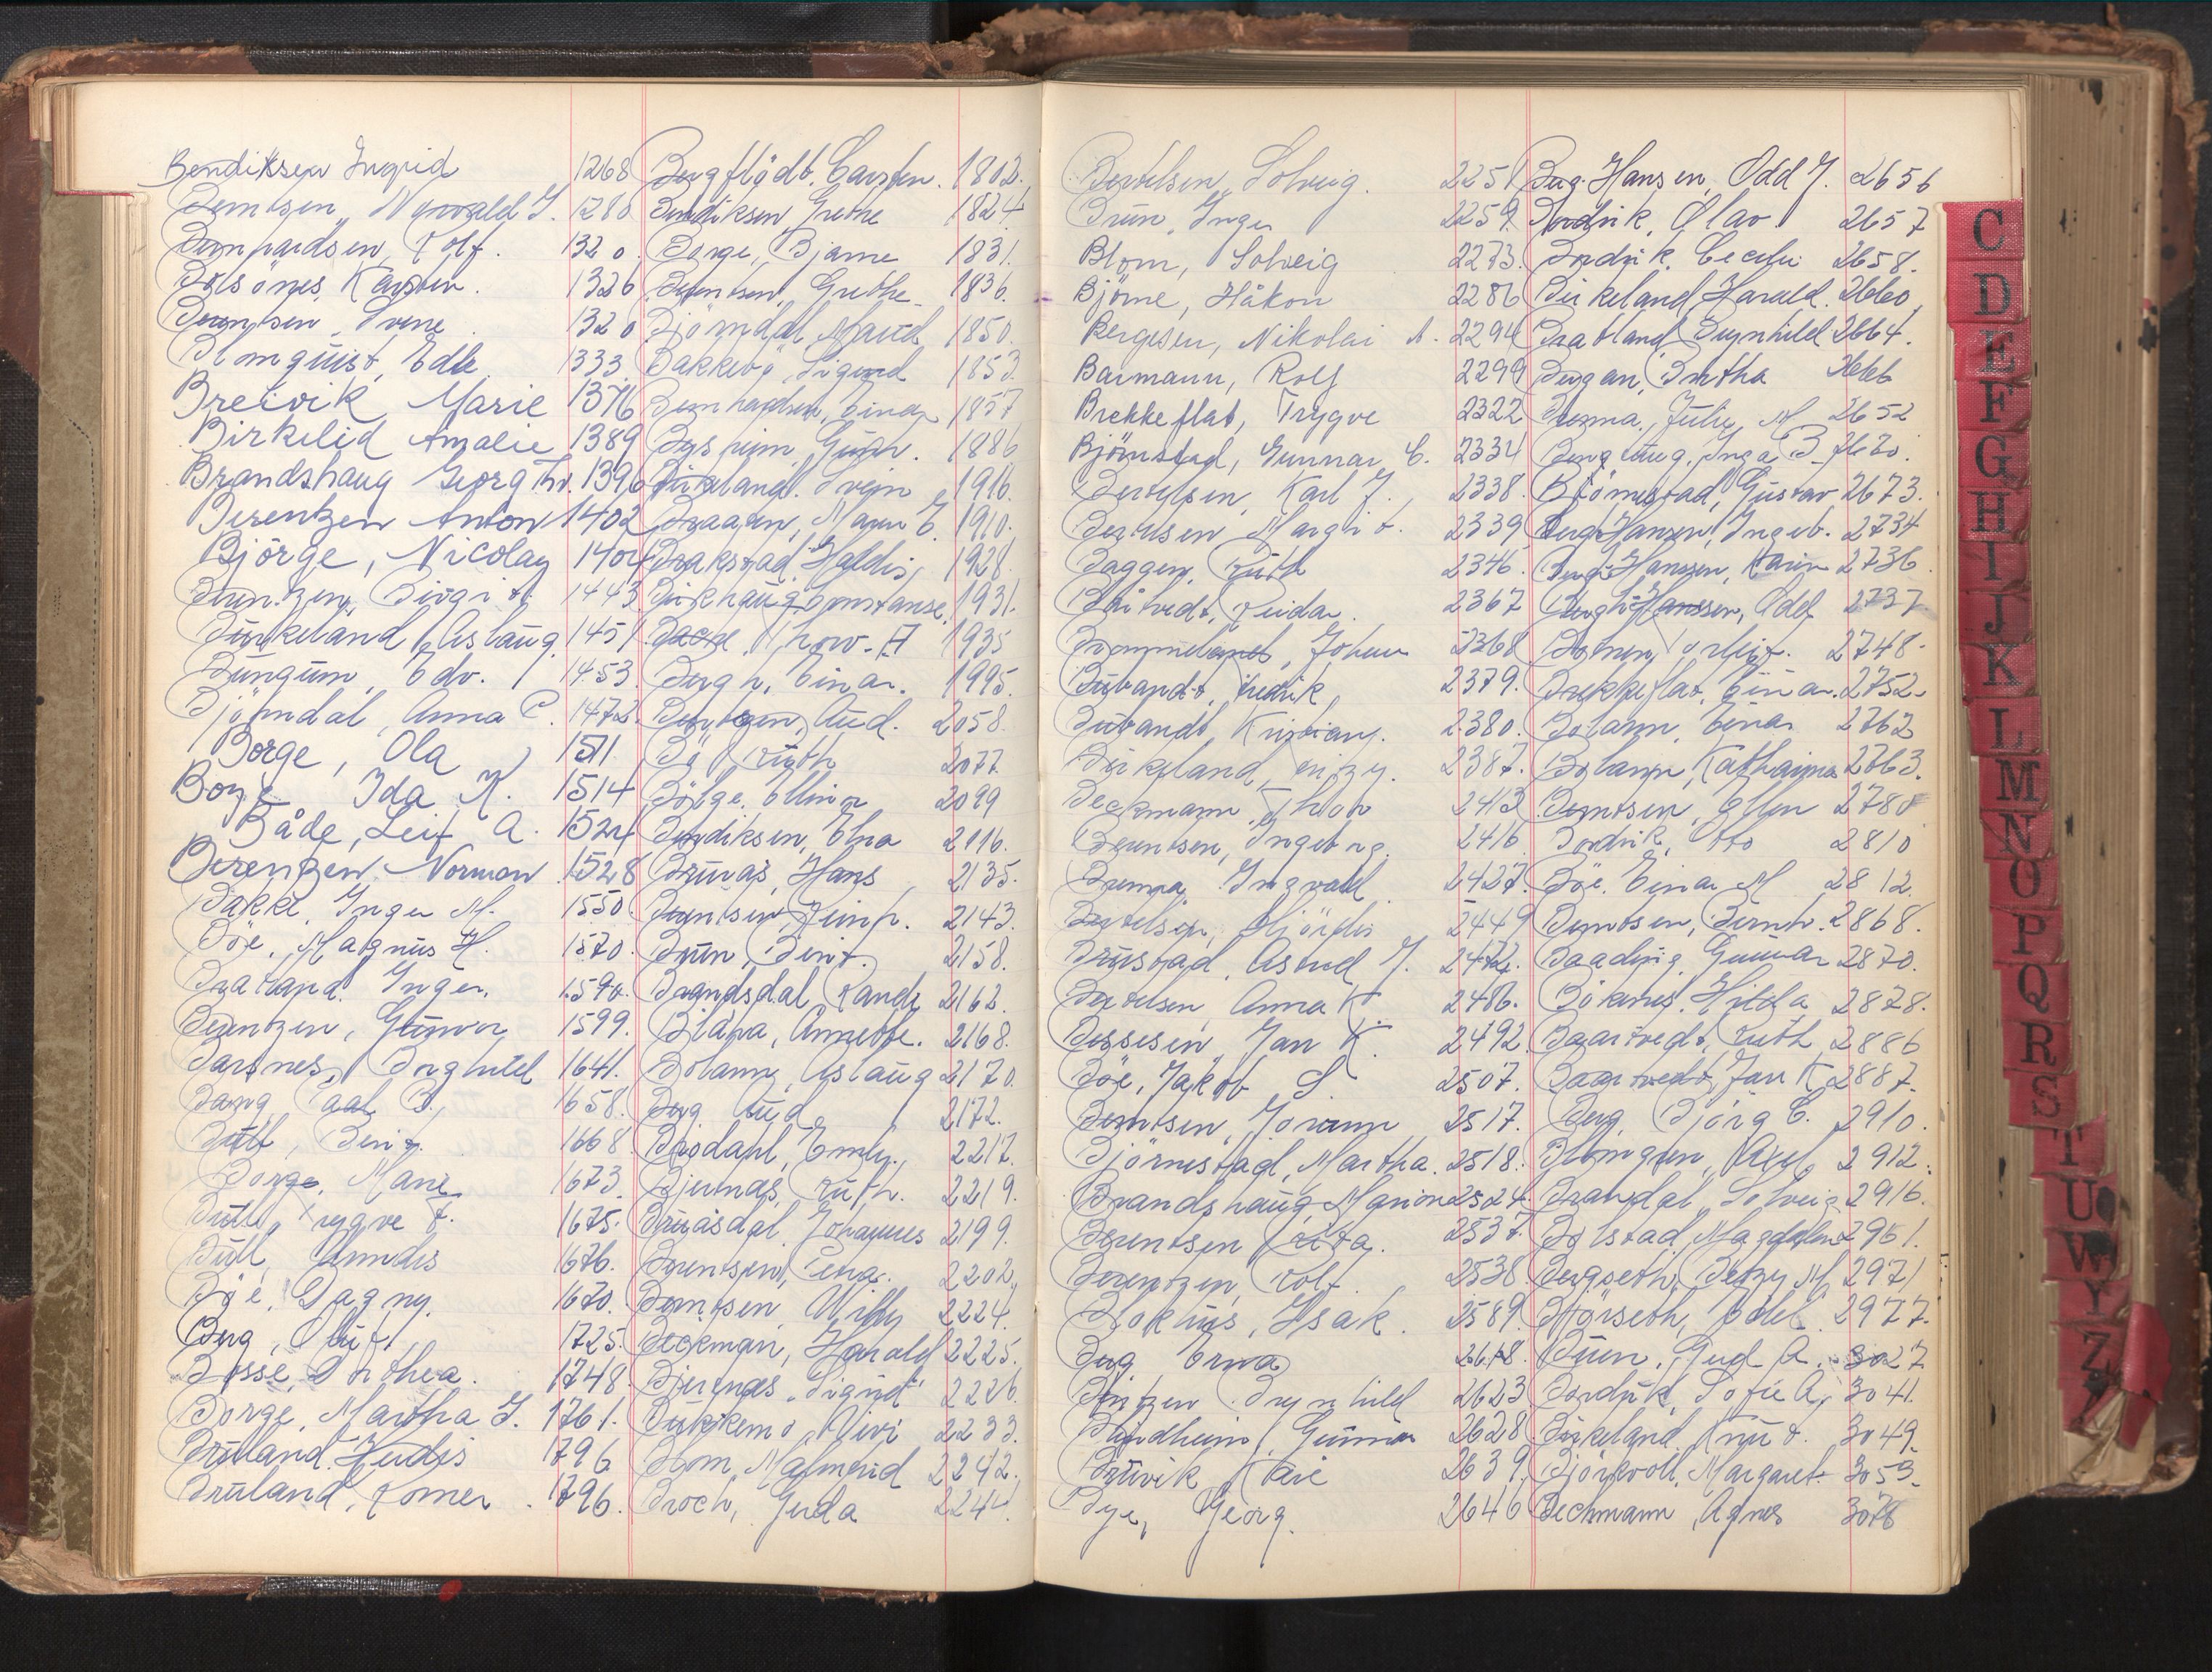 Bendiksen Ingrid 1268
Berntsen, 1280
Bernhardsen, Rolf. 1320
Bolsönes, Karsten. 1326
Berntsen, Svene 1320
Blmquist, Edle 1333
Breivik Marie 1376
Birkelid Amalie 1389
Brandshaug Georg Th. 1396
Berentzen Anton 1402
Björge, Nicolay 1404
Berntzen, Birgit 1443
Birkeland, Aslaug 1451
Bungum, Edv. 1453
Björndal, Anna C. 1472
Borge, Ola 1511
Borge Ida K. 1514
Både, Leif A. 1524
Berentzen Norman 1528
Bakke, Inger M. 1550
Böe, Magnus H. 1570
Bratland, Inger. 1590
Berntzen, Gunvor 1599
Barsnes, Borghild 1641
Bang, Paal B. 1658
Bull, Bent. 1668
Borge, Marie 1673
Bull, Trygve F. 1675
Bull, Anndis 1676
Böe, Dagny. 1670
Berg, Oluf 1725
Bosse, Dorthea. 1748
Borge, Martha J. 1761
Bruland, Hudis 1796
Bruland, Romer 1796
Bergflödt, Carsten. 1802
Bendiksen, Grethe 1824
Borge, Bjarne 1831
Berntsen, Grethe 1836
Björndal, Maud 1850
Bakkebö, Sigurd 1853
Bernhardsen, Einar 1857
Byheim, Gudr. 1886
Birkeland, Svein 1916
Braaten, Marie E. 1910
Brakstad, Haldis 1928
Birkhaug, Constanse 1931
Backe, Thorv. A 1935
Bergh, Einar. 1995
Berntzen, Aud. 2058
Bö, Ruth 2077
Bölge, Ellinor 2099
Bendiksen, Elna 2116
Brunås, Hans 2135
Berntsen, Reinh. 2143
Brun, Bernt. 2158
Brandsdal, Randi 2162
Blåna, Annette. 2168
Bolann, Aslaug 2170
Berg, Aud 2172
Brodahl, Emly. 2217
Bjernæs, Ruth. 2219
Bruåsdal, Johannes 2199
Berentsen, Lena. 2202
Berntsen, Willy 2224
Beckman, Harald 2225
Bjernæs, Sigrid 2226
Birkemo, Vivi 2233
Blom, Malmfrid 2242
Broch, Gerda 2244
Bertelsen, Solveig. 2251
Brun, Inger 2259
Blom, Solveig 2273
Björne, Håkon 2286
Bergesen, Nikolai A. 2294
Barmann, Rolf 2299
Brekkeflat, Trygve 2322
Björnstad, Gunnar C. 2334
Bertelsen, Karl J. 2338
Bertelsen Margit. 2339
Baggen, Ruth 2346
Båtvedt, Reidar. 2367
Brommeland, Johan 2368
Buvandt, Fredrik 2379
Buvandt, Kristian. 2380
Birkeland, Jenzy. 2387
Beckmann, Thor 2413
Berntsen, Ingeborg. 2416
Brempa, Ingvald 2427
Bertelsen, Hjördis 2449
Brustad, Astrid J. 2472
Bertelsen, Anna K. 2486
Bessesen, Jan K. 2492
Böe, Jakob S. 2507
Berntsen, Jorunn 2517
Björnestad, Martha. 2518
Brandshaug, Marion 2524
Berentsen, Rita. 2537
Berentzen, Rolf 2538
Blokhus, Isak. 2589
Berg Erna 2618
Brynhild 2623
Blindheim, Gunnar 2628
Bruvik, Kåre 2639
Bye, Georg. 2646
Berg-Hansen, Odd J. 2656
Bordvik, Olav 2657
Bordvik, Cecilie 2658
Birkeland, Harald. 2660
Bratland, Brynhild 2664
Bergan, Bertha 2666
Brema, Julie M. 2652
Berghaug, Inga B. 2670
Björnestad, Gustav 2673
Berg-Hansen, Ingeb. 2734
Berg-Hanssen, Karin 2736
Bergh-Hanssen, Odd 2737
Botnen, Torleif. 2748
Brekkeflat, Einar. 2752
Bolann, Einar 2762
Bolann, Katharina 2763
Berntsen, Ellen 2780
Bordvik, Otto 2810
Böe, Einar M 2812
Berntsen, Bernh. 2868
Baading, Gunnar 2870
Böknes, Hilda 2878
Baartvedt, Ruth 2886
Baartvedt, Jan K. 2887
Berg, Björg C. 2910
Blomgren, Axel 2912
Brandal, Solveig 2916
Bolstad, Magdalena 2961
Bergseth, Betzy M. 2971
Börseth, Odel. 2977
Buen, Gud A. 3027
Bordvik, Sofie A. 3041
Birkeland, Knut. 3049
Björkvoll, Margaret 3053
Bechmann, Agnes 3076
C
D
E
F
G
H
I
J
K
L
M
N
O
P
Q
R
S
T
U
W
Y
Z